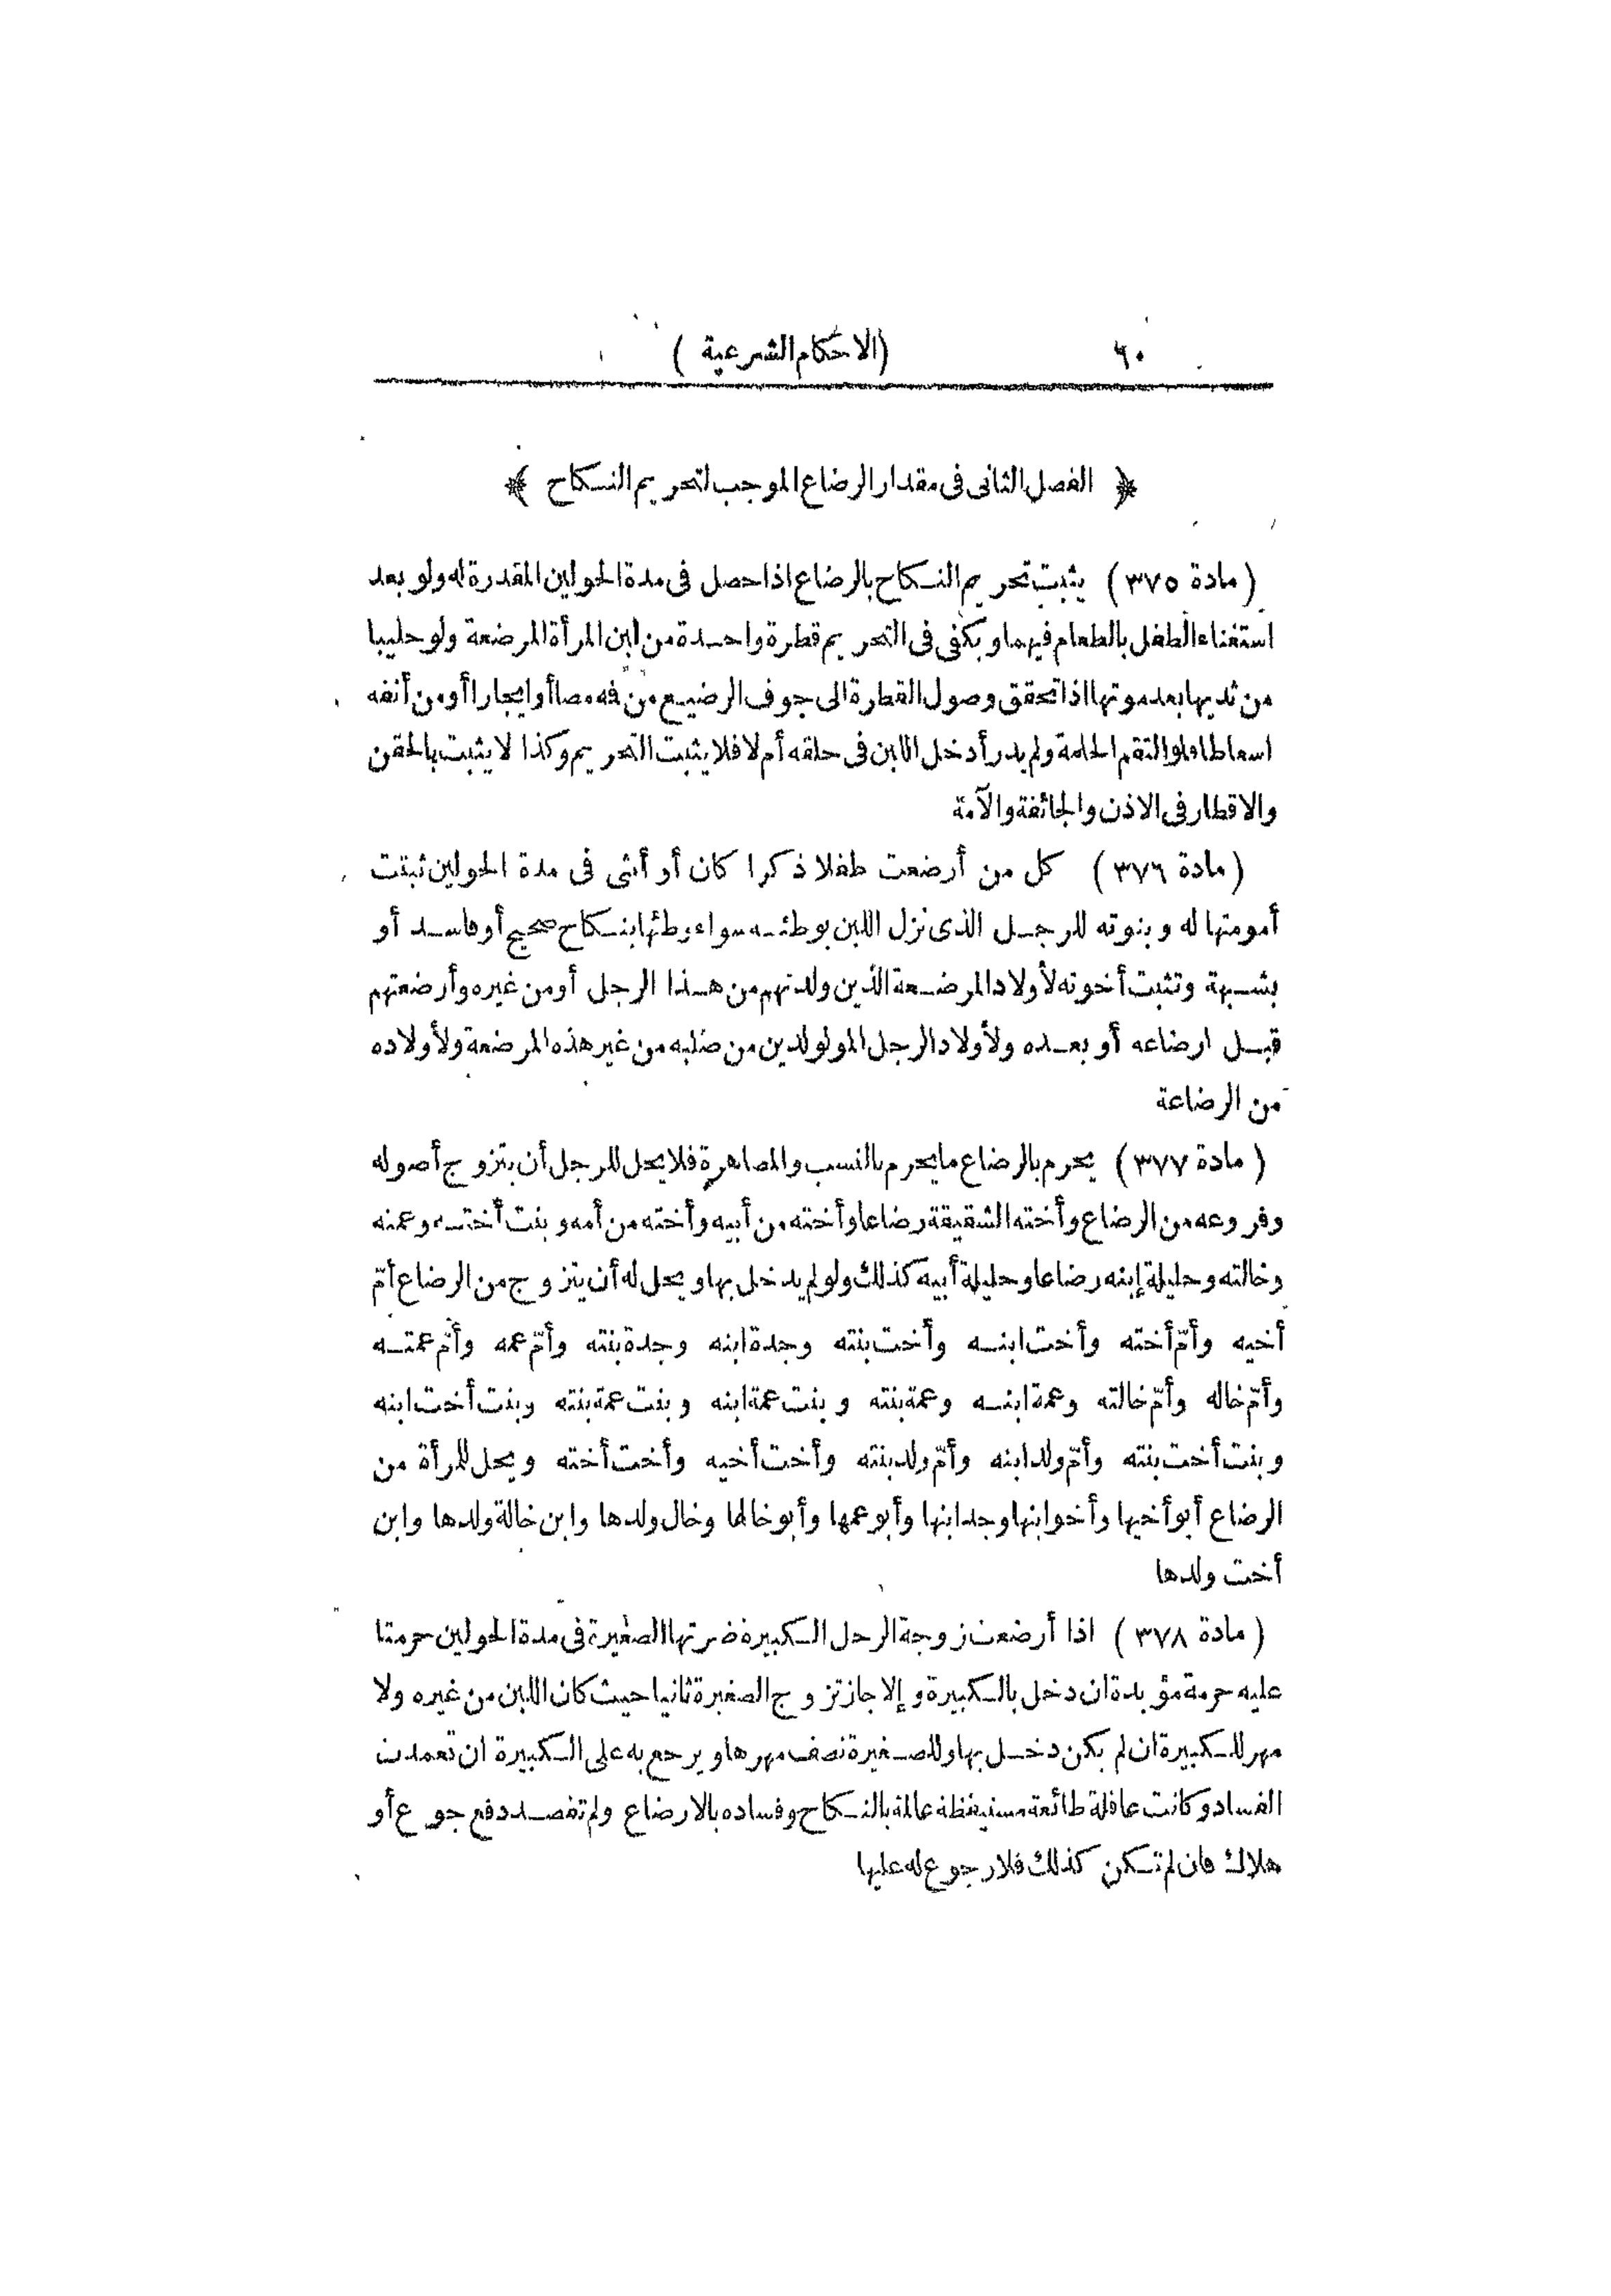 ٦٠ (الاحكام الشرعية)
﴿ الفصل الثانى فى مقدار الرضاع الموجب لتحريم النكاح ﴾
(مادة ٣٧٥) يثبت تحريم النكاح بالرضاع اذا حصل فى مدة الحولين المقدرة له ولو بعد
استغناء الطفل بالطعام فيهما ويكفى فى التحريم قطرة واحدة من لبن المرأة المرضعة ولو حليبا
من ثديها بعد موتها اذا تحقق وصول القطرة الى جوف الرضيع من فمه مصا أو ايجارا أو من أنفه
اسعاطا فلو التقم الحلمة ولم يدر أدخل اللبن فى حلقه أم لا فلا يثبت التحريم وكذا لا يثبت بالحقن
والاقطار فى الاذن والجائفة والآمة
(مادة ٣٧٦) كل من أرضعت طفلا ذكرا كان أو أنثى فى مدة الحولين ثبتت
أمومتها له وبنوته للرجل الذى نزل اللبن بوطئه سواء وطئها بنكاح صحيح أو فاسد أو
بشبهة وتثبت أخوته لأولاد المرضعة الذين ولدتهم من هذا الرجل أو من غيره وأرضعتهم
قبل ارضاعه أو بعده ولأولاد الرجل المولولدين من صلبه من غير هذه المرضعة ولأولاده
من الرضاعة
(مادة ٣٧٧) يحرم بالرضاع ما يحرم بالنسب والمصاهرة فلا يحل للرجل أن يتزوج أصوله
وفروعه من الرضاع وأخته الشقيقة رضاعا وأخته من أبيه وأخته من أمه وبنت أخته وعمته
وخالته وحليلة إبنه رضاعا وحليلة أبيه كذلك ولو لم يدخل بها ويحل له أن يتزوج من الرضاع أمّ
أخيه وأمّ أخته وأخت ابنه وأخت بنته وجدة ابنه وجدة بنته وأمّ عمه وأمّ عمته
وأمّ خاله وأمّ خالته وعمة ابنه وعمة بنته وبنت عمة ابنه وبنت عمة بنته وبنت أخت ابنه
وبنت أخت بنته وأمّ ولد ابنه وأمّ ولد بنته وأخت أخيه وأخت أخته ويحل للمرأة من
الرضاع أبو أخيها وأخو ابنها وجد ابنها وأبو عمها وأبو خالها وخال ولدها وابن خالة ولدها وابن
أخت ولدها
(مادة ٣٧٨) اذا أرضعت زوجة الرجل الكبيرة ضرتها الصغيرة فى مدة الحولين حرمتا
عليه حرمة مؤبدة ان دخل بالكبيرة وإلا جاز تزوج الصغيرة ثانيا حيث كان اللبن من غيره ولا
مهر للكبيرة ان لم يكن دخل بها وللصغيرة نصف مهرها ويرجع به على الكبيرة ان تعمدت
الفساد وكانت عاقلة طائعة مستيقظة عالمة بالنكاح وفساده بالارضاع ولم تقصد دفع جوع أو
هلاك فان لم تكن كذلك فلا رجوع له عليها